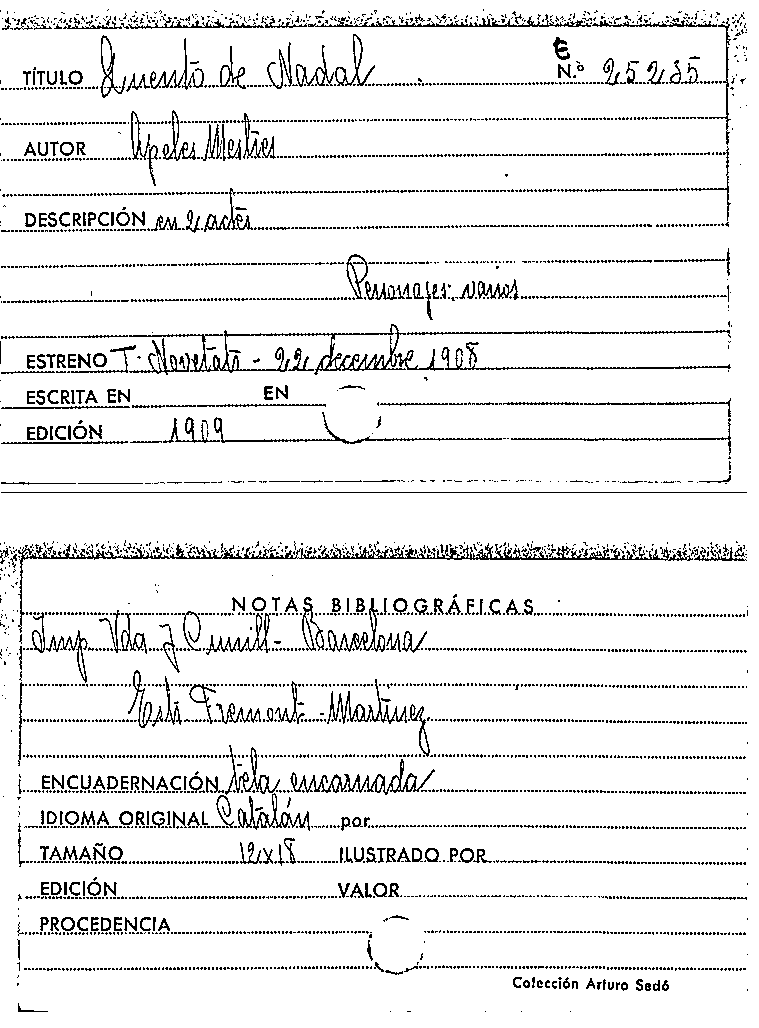 E
TÍTULO Quento de Nadal N.º 25235
AUTOR Apeles Mestres
DESCRIPCIÓN en 2 actes
Personajes varios
ESTRENO T. Novetats - 22 decembre 1908
ESCRITA EN EN
EDICIÓN 1909
NOTAS BIBLIOGRÁFICAS
Imp Vda J Cunill - Barcelona
Fremont - Martínez
ENCUADERNACIÓN tela encarnada
IDIOMA ORIGINAL Catalán por
TAMAÑO 12x18 ILUSTRADO POR
EDICIÓN VALOR
PROCEDENCIA
Colección Arturo Sedó